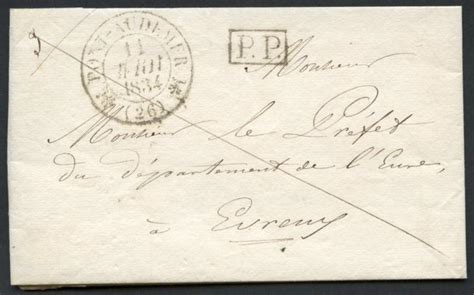 PONT-AUDEMER
11
1834
(26)
P.P.
Monsieur
Monsieur le Préfet
du département de l'Eure,
à Evreux